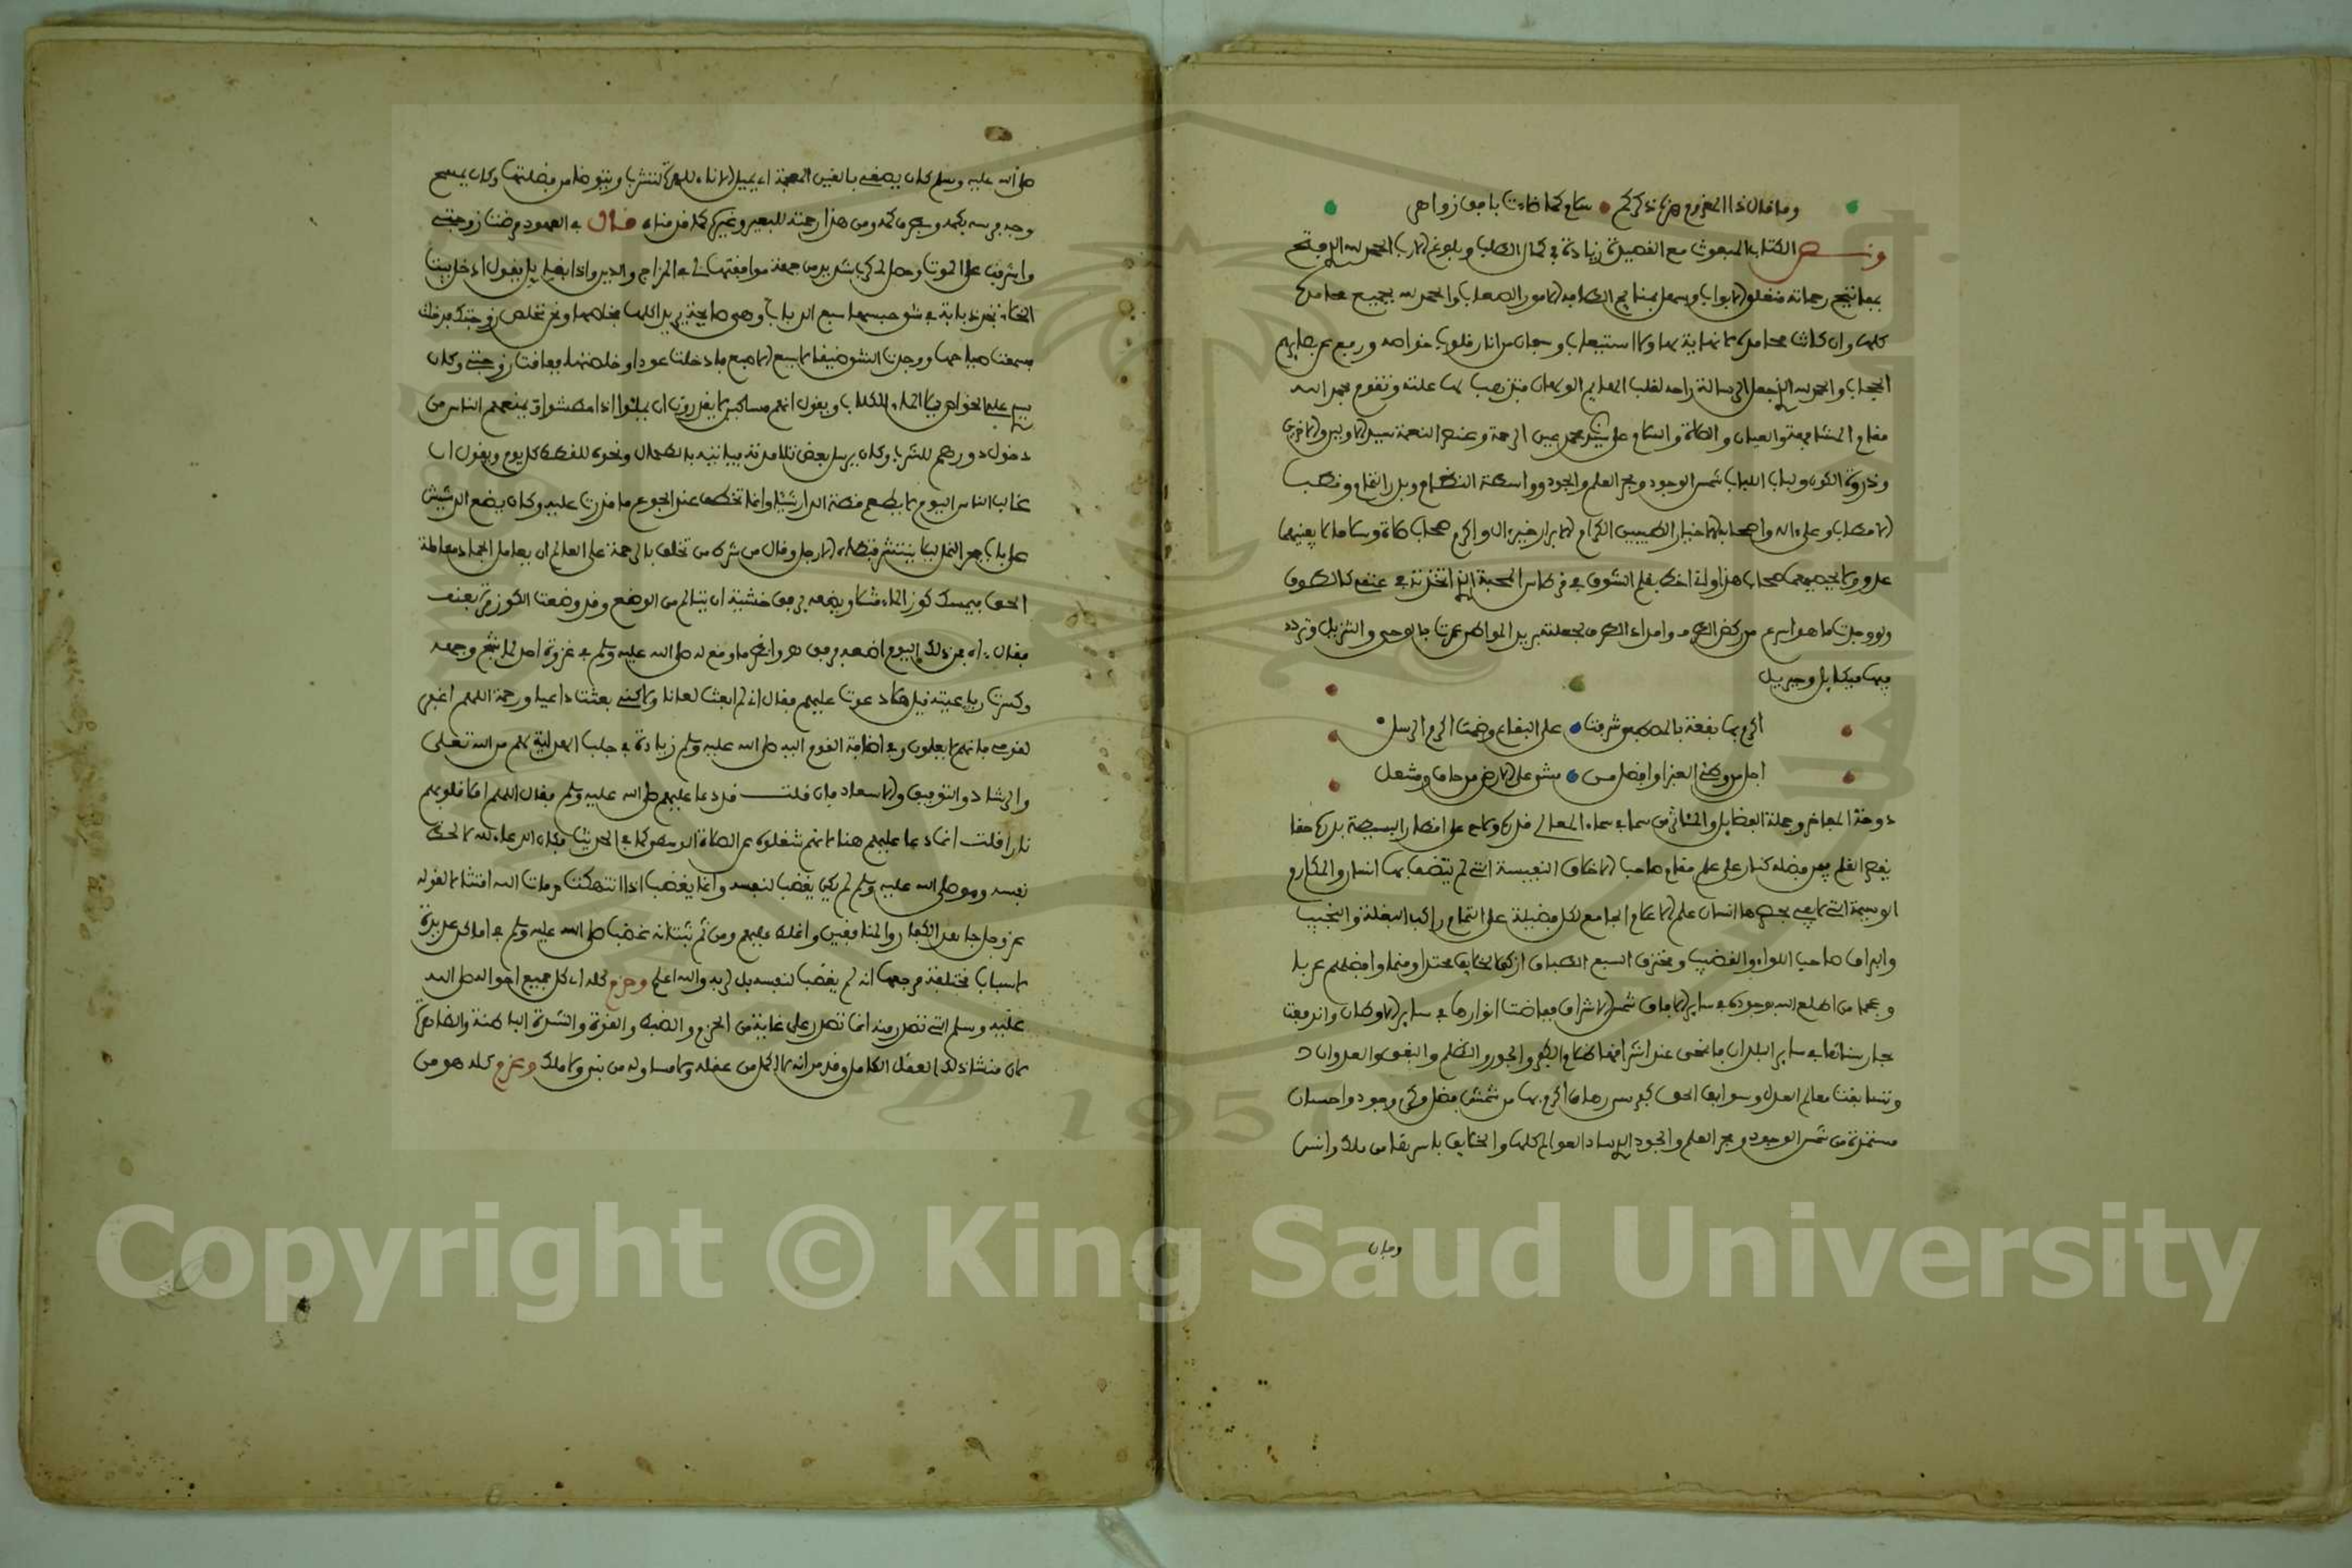 وما قال ذا المغرم هزه ذكركم سلام كما ضاءت بأفق زواهر
ونص الكتاب المبعوث مع القصيدة زيادة في كمال الطلب وبلوغ الارب الحمد لله الذي فتح
بمفاتيح رحماته مغلق الابواب وسهل الامور الصعاب والحمد لله بجميع محامده
كلها وان كانت محامده لا نهاية لها ولا استيعاب وسبحان من انار قلوب خواصه ورفع عن بصايرهم
الحجاب والحمد لله الذي جعل الرسالة راحة لقلب الهايم الولهان فتذهب بها علته وتقوم بحمد الله
مقام المشافهة والعيان والصلاة والسلام على سيدنا محمد عين الرحمة وعنصر النعمة سيد الاولين والاخرين
وذروة الكون ولباب اللباب شمس الوجود وبحر العلم والجود وواسطة النظام وبدر التمام وقطب
الاقطاب وعلى ءاله واصحابه الاخيار الطيبين الكرام الابرار خير ءال واكرم صحاب صلاة وسلاما لا يفنيهما
عد ولا يحصيهما حساب هذا ولما اخذ بقلم الشوق في قرطاس المحبة
ولو وجدت ما هو اسرع من ركض الطرف وامداد الطرف لجعلته بريد المواطن عمرت بالوحي والتنزيل وتردد
فيها ميكايل وجبريل
اكرم بها بقعة بالمصطفى شرفت على البقاع وضمت اكرم الرسل
اجل من وطئ الغبرا وافضل من مشى على الارض من حاف ومنتعل
دوحة المفاخر وجملة الفضايل والمئاثر من سما في سماء المعالي قدره ولاح على اقطار البسيطة بدره حقا
صاحب الاخلاق النفيسة التي لم يتصف بها انسان والمكارم
علم الاعلام الجامع لكل فضيلة على التمام راكب البغلة والنجيب
والبراق صاحب اللواء والقضيب ومخترق السبع الطباق ازكى الخلايق محتدا ومنما وافضلهم عربا
وعجما من اطلع الله بوجوده في ساير الافاق شمس الاشراق ففاضت انوارها في ساير الاوطان واندفقت
بحار سنائها في ساير البلدان فانمحى عند اشراقها ظلام الكفر والجور والظلم والبغي والعدوان
وتسابقت معالم العدل وسوابق الحق اكرم بها من شمس فضل وكرم وجود واحسان
مستمدة من شمس الوجود وبحر العلم والجود الذي ساد العوالم كلها والخلايق باسرها من ملك وانس
وجان
صلى الله عليه وسلم كان يصغى بالغين المعجمة اي يميل الاناء للهرة لتشرب ويتوضا من فضلتها وكان يمسح
وجه فرسه بكمه وبطرف كمه ومن هذا رحمته للبعير وغيره كما قدمناه قال في العهود مرضت زوجتي
واشرفت على الموت وحصل لي كرب شديد من جهة موافقتها لي في المزاج والدين واذا بقايل يقول ادخل بيت
الخلاء تجد ذبابة في شق حبسها سبع الذباب وهي صايحة يريد اكلها فخلصها ونحن نخلص زوجتك من ذلك
فسمعت صياحها ووجدت الشق ضيقا لا يسع الاصبع فادخلت عودا وخلصتها فعافت زوجتي وكان
سيدي علي الخواص يملا الماء للكلاب ويقول انهم مساكين لا يقدرون ان يملئوا اذا عطشوا ويمنعهم الناس من
دخول دورهم للشرب وكان يرسل بعض تلامذته فياتيه بالطحال ونحوه للقطط كل يوم ويقول ان
غالب الناس اليوم لا يطعم قطة الدار شيئا وانما تخطف عند الجوع ما قدرت عليه وكان يضع الدشيش
على باب جحر النمل ليلا ينتشر فتطأه الارجل وقال من شرط من تخلق بالرحمة على العالم ان يعامل الجماد معاملة
الحي فيمسك كوز الماء مثلا ويضعه برفق خشية ان يتالم من الوضع وقد وضعت الكوز مرة بعنف
فقال ءاه فمن ذلك اليوم اضعه برفق هـ وانظر ما وقع له صلى الله عليه وسلم في غزوة احد لما شج وجهه
وكسرت رباعيته قيل هلا دعوت عليهم فقال اني لم ابعث لعانا ولكني بعثت داعيا ورحمة اللهم اغفر
لقومي فانهم لا يعلمون وفي اضافة القوم اليه صلى الله عليه وسلم زيادة في جلب الهداية لهم من الله تعالى
والرشاد والتوفيق والاسعاد فان قلت قد دعا عليهم صلى الله عليه وسلم فقال اللهم املا قلوبهم
نارا قلت انما دعا عليهم هنا لانهم شغلوه عن الصلاة الوسطى كما في الحديث فكان الدعاء لله لا لحظ
نفسه وهو صلى الله عليه وسلم لم يكن يغضب لنفسه وانما يغضب اذا انتهكت حرمات الله امتثالا لقوله
عز وجل جاهد الكفار والمنافقين واغلظ عليهم ومن ثم ثبت انه غضب صلى الله عليه وسلم في اماكن عديدة
لاسباب مختلفة مرجعها انه لم يغضب لنفسه بل لربه والله اعلم وحزم كله اي كل جميع احواله صلى الله
عليه وسلم التي تصدر منه انما تصدر على غاية من الحزم والضبط والقوة والشدة الباطنة والظاهرة
لان منشا ذلك العقل الكامل وقد مر انه لا اكمل من عقله ولا مساو له من نبي ولا ملك وعزم كله هو من